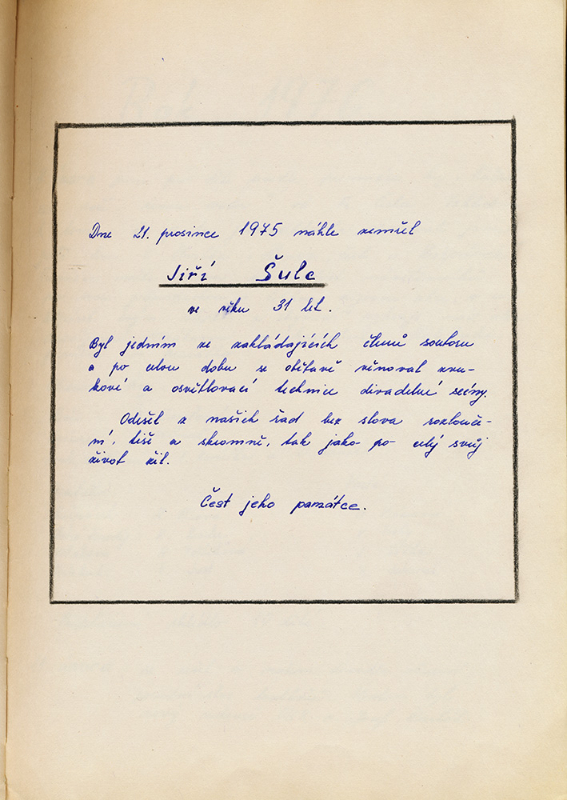 Dne 21. prosince 1975 náhle zemřel
Jiří Šulc
ve věku 31 let.
Byl jedním ze zakládajících členů souboru
a po celou dobu se obětavě věnoval zvu-
kové a osvětlovací technice divadelní scény.
Odešel z našich řad bez slova rozlouče-
ní, tiše a skromně, tak jako po celý svůj
život žil.
Čest jeho památce.